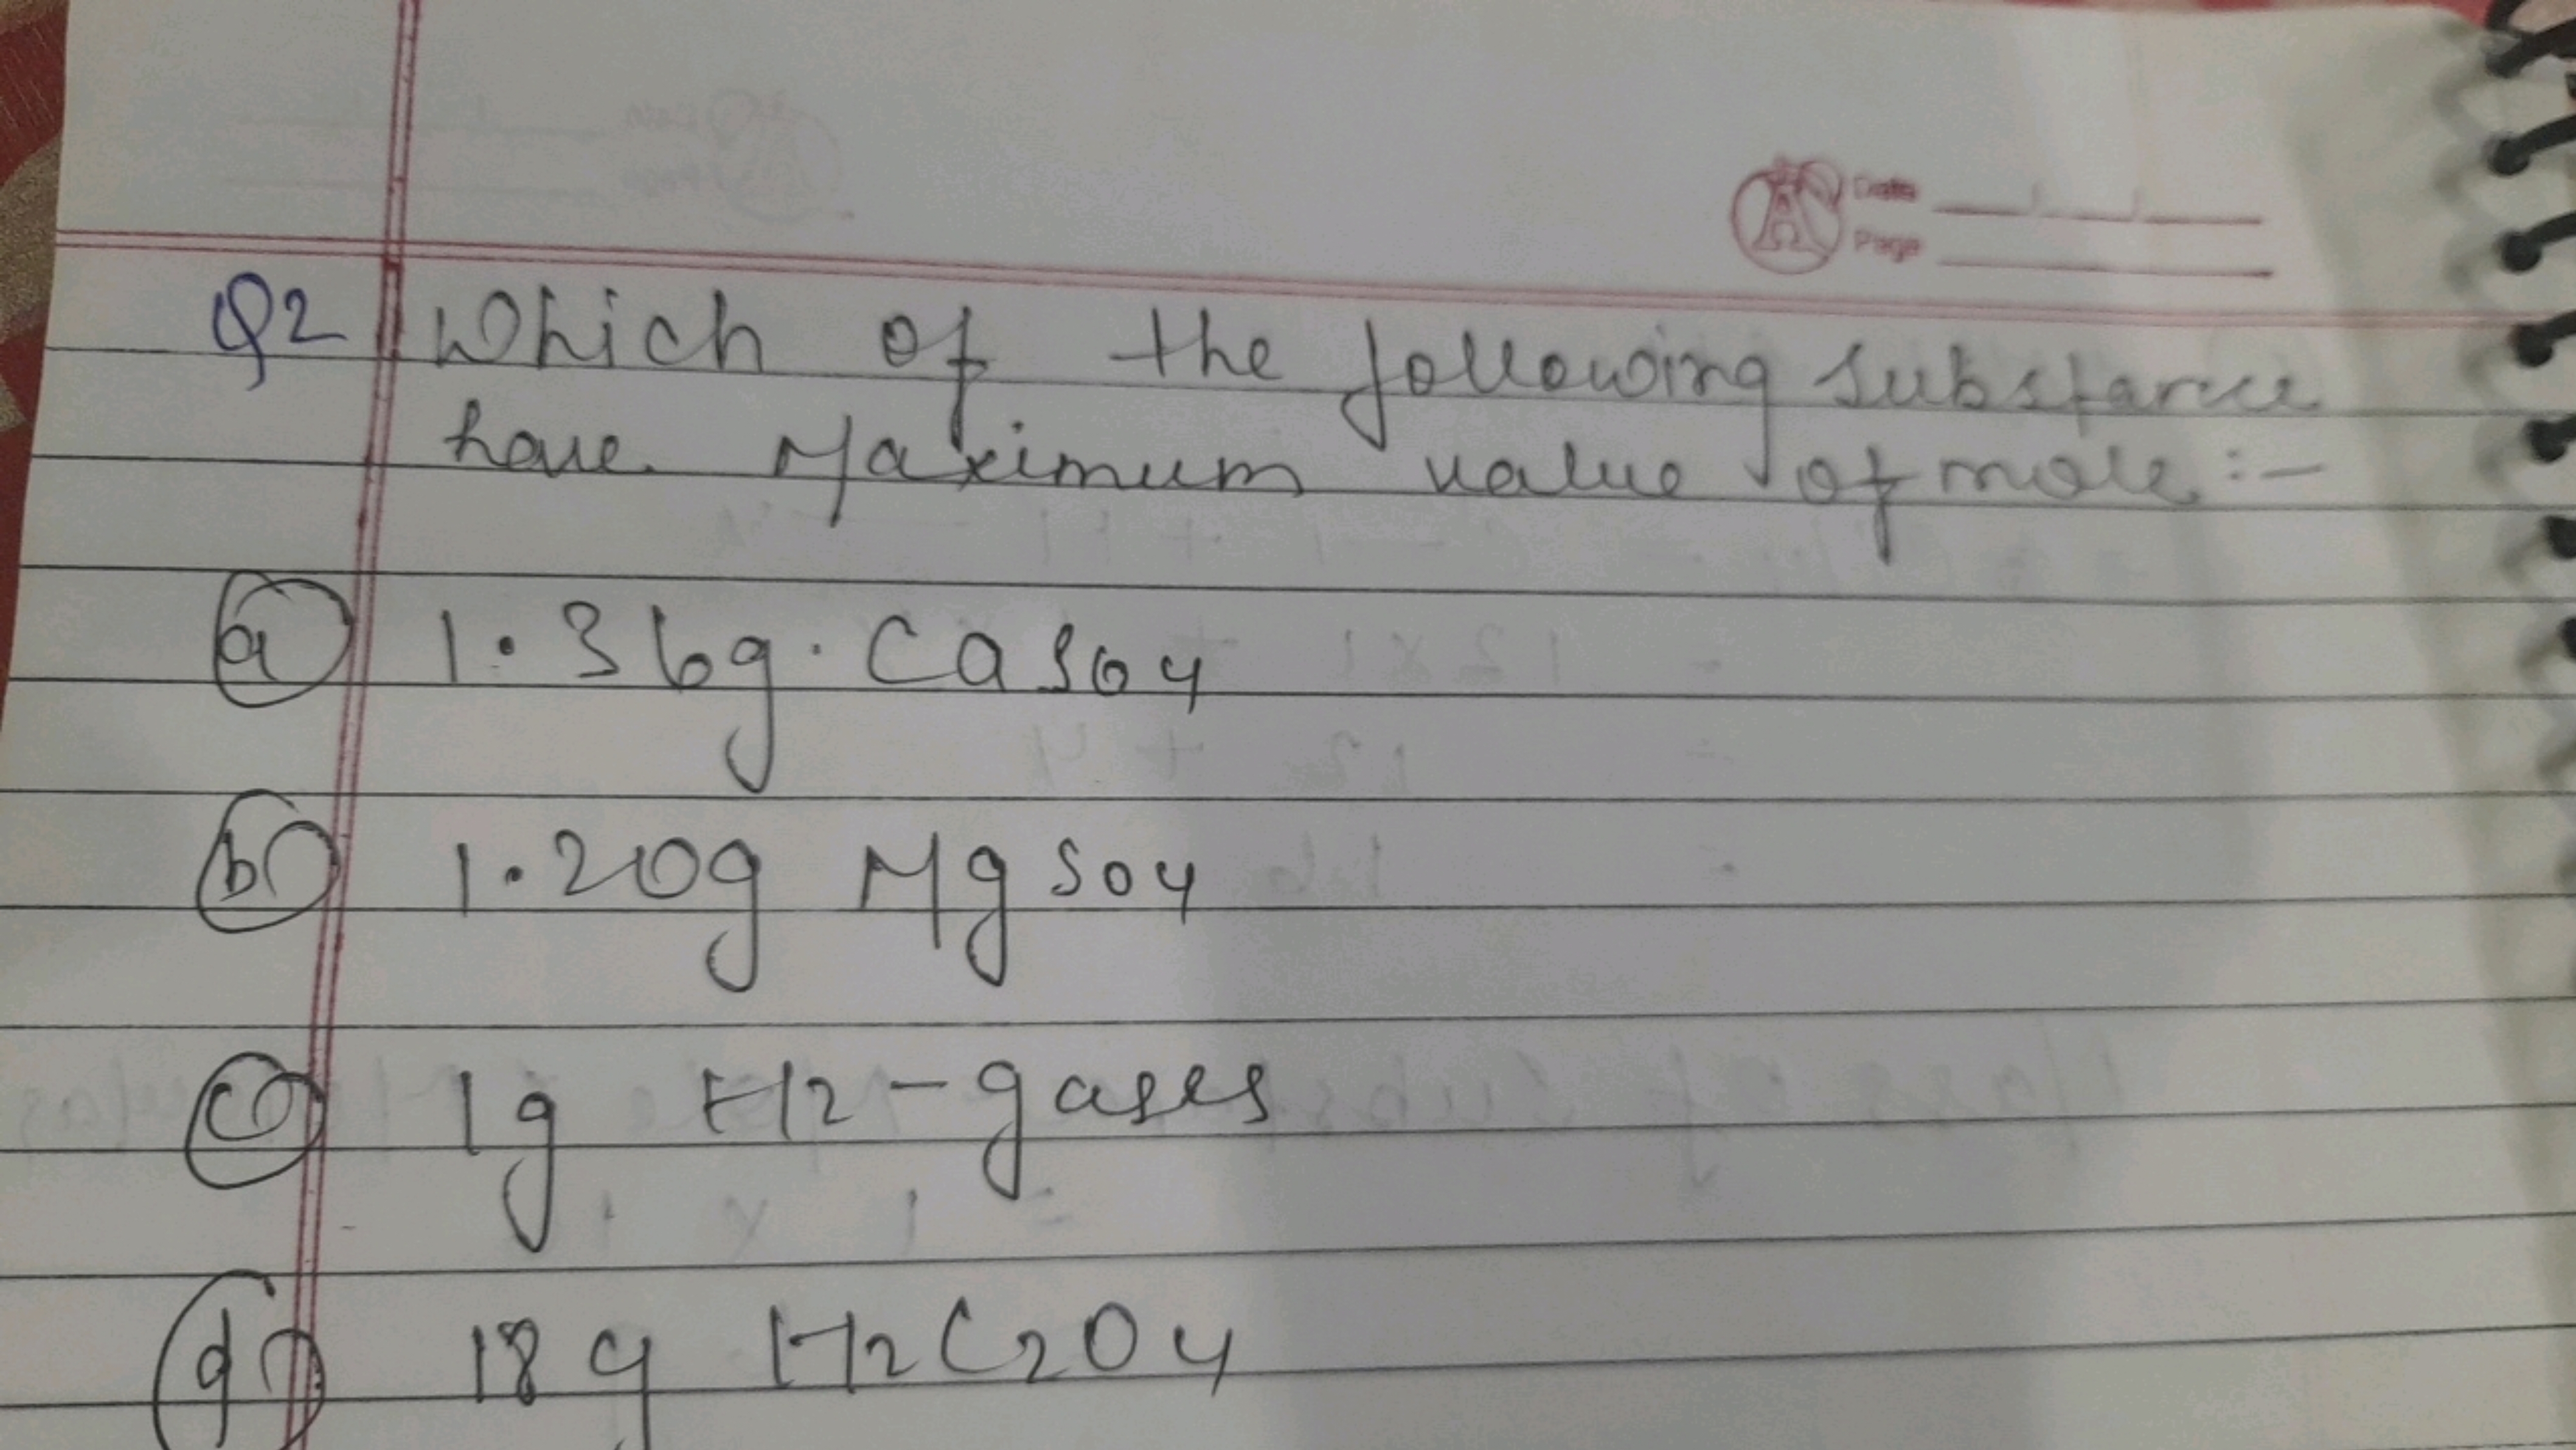 Date
Page
Q2 Which of the following substance
have Maximum value of mole :-
a 1.36g. CaSO4
b 1.20g MgSO4
c 1g H2-gases
d 18g H2C2O4